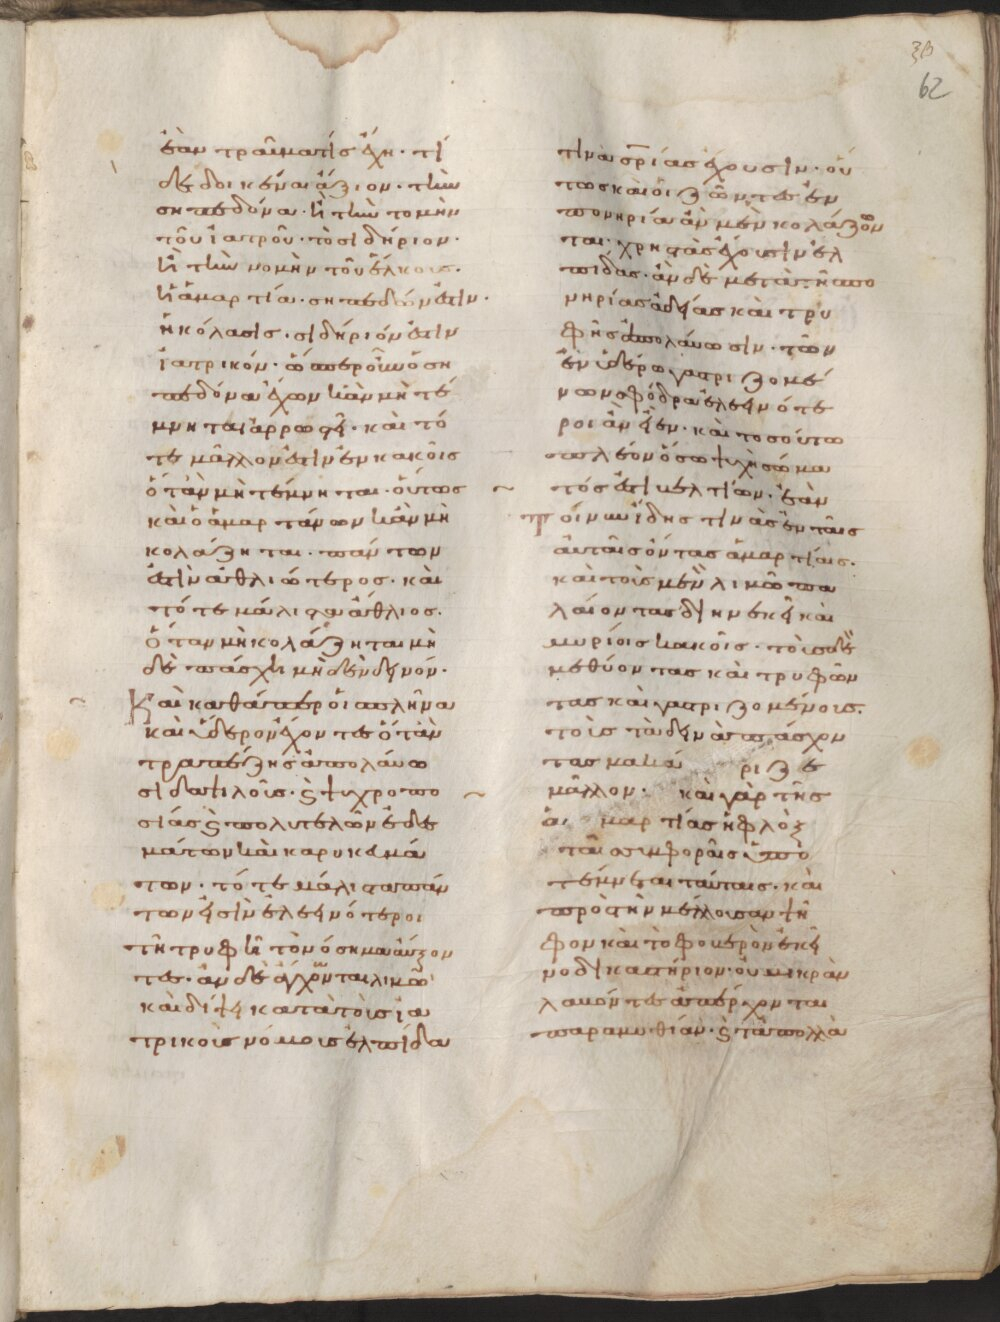 ξβ
62
ἐὰν τραῦμα τὶς ἔχη · τί
δεδοικέναι ἄξιον · τὴν
σηπεδόνα · ἢ τὴν τομὴν
τοῦ ἰατροῦ · τὸ σιδήριον ·
ἢ τὴν νομὴν τοῦ ἕλκους ·
ἡ ἁμαρτία · σηπεδών ἐστιν ·
ἡ κόλασις · σιδήριόν ἐστιν
ἰατρικόν · ὥσπερ οὖν ὁ ση
πεδόνα ἔχων κἂν μὴ τέ
μνηται ἀρρωστεῖ · καὶ τό
τε μᾶλλον ἐστὶν ἐν κακοῖς
ὅταν μὴ τέμνηται · οὕτως
καὶ ὁ ἁμαρτάνων κἂν μὴ
κολάζηται · πάντων
ἐστὶν ἀθλιώτερος · καὶ
τότε μάλιστα ἄθλιος ·
ὅταν μὴ κολάζηται μὴ
δὲ πάσχη μηδὲν δεινόν ·
Καὶ καθάπερ οἱ σπλῆνα
καὶ ὕδερον ἔχοντες ὅταν
τραπέζης ἀπολαύω
σι δαψιλοῦς · ϗ ψυχροπο
σίας ϗ πολυτελῶν ἐδε
μάτων καὶ καρυκευμά
των · τότε μάλιστα πάν
των εἰσὶν ἐλεεινότεροι
τῆ τρυφῆ τὸ νόσημα αὔξον
τες · ἂν δὲ ἄγχωνται λιμῶ
καὶ δίψει κατὰ τοὺς ἰα
τρικοὺς νόμους ἐλπίδα
τινὰ σρίας ἔχουσιν · οὕ
τως καὶ οἱ ζῶντες ἐν
πονηρία ἂν μὲν κολάζων
ται · χρηστὰς ἔχουσιν ἐλ
πίδας · ἂν δὲ μετὰ τῆς πο
νηρίας ἀδείας καὶ τρυ
φῆς ἀπολαύωσιν · τῶν
ἐν ὑδέρω γαστριζομέ
νων σφόδρα ἐλεεινότε
ροι ἂν εἶεν · καὶ τοσούτω
πλέον ὅσω ψυχὴ σώμα
τός ἐστι βελτίων · ἐὰν
τοίνυν ἴδης τινὰς ἐν ταῖς
αὐταῖς ὄντας ἁμαρτίαις ·
καὶ τοὺς μὲν λιμῶ πα
λαίοντας διηνεκεῖ καὶ
μυρίοις κακοῖς · τοὺς δὲ
μεθύοντας καὶ τρυφῶν
τας καὶ γαστριζομένους ·
τοὺς τὰ δεινὰ πάσχον
τας μακά ριζε
μᾶλλον · καὶ γὰρ τῆς
ἁ μαρτίας ἡ φλὸξ
ταῖς συμφοραῖς ὑπο
τέμνεται ταύταις · καὶ
πρὸς τὴν μέλλουσαν ψῆ
φον καὶ τὸ φοβερὸν ἐκεῖ
νο δικαστήριον · οὐ μικρὰν
λαβόντες ἀπέρχονται
παραμυθίαν · ϗ τὰ πολλὰ